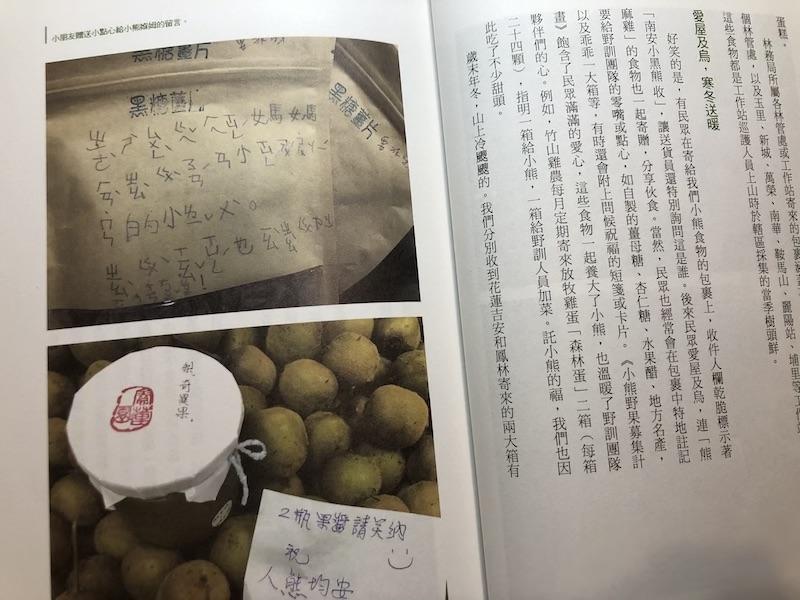 小朋友贈送小點心給小熊媽姆的留言。
黑糖薑片
黑糖薑片
媽媽
白的小
也
梨.奇異果.
2瓶果醬請笑納
祝
人熊均安
蛋糕。
林務局所屬各林管處或工作站寄來的包裹
個林管處，以及玉里、新城、萬榮、南華、鞍馬山、麗陽站、埔里等工作站
這些食物都是工作站巡護人員上山時於轄區採集的當季樹頭鮮。
愛屋及烏，寒冬送暖
好笑的是，有民眾在寄給我們小熊食物的包裹上，收件人欄乾脆標示著
「南安小黑熊 收」，讓送貨員還特別詢問這是誰。後來民眾愛屋及烏，連「熊
麻雞」的食物也一起寄贈，分享伙食。當然，民眾也經常會在包裹中特地註記
要給野訓團隊的零嘴或點心，如自製的薑母糖、杏仁糖、水果醋、地方名產，
以及乖乖一大箱等，有時還會附上問候祝福的短箋或卡片。《小熊野果募集計
畫》飽含了民眾滿滿的愛心，這些食物一起養大了小熊，也溫暖了野訓團隊
夥伴們的心。例如，竹山雞農每月定期寄來放牧雞蛋「森林蛋」二箱（每箱
二十四顆），指明一箱給小熊，一箱給野訓人員加菜。託小熊的福，我們也因
此吃了不少甜頭。
歲末年冬，山上冷颼颼的。我們分別收到花蓮吉安和鳳林寄來的兩大箱有